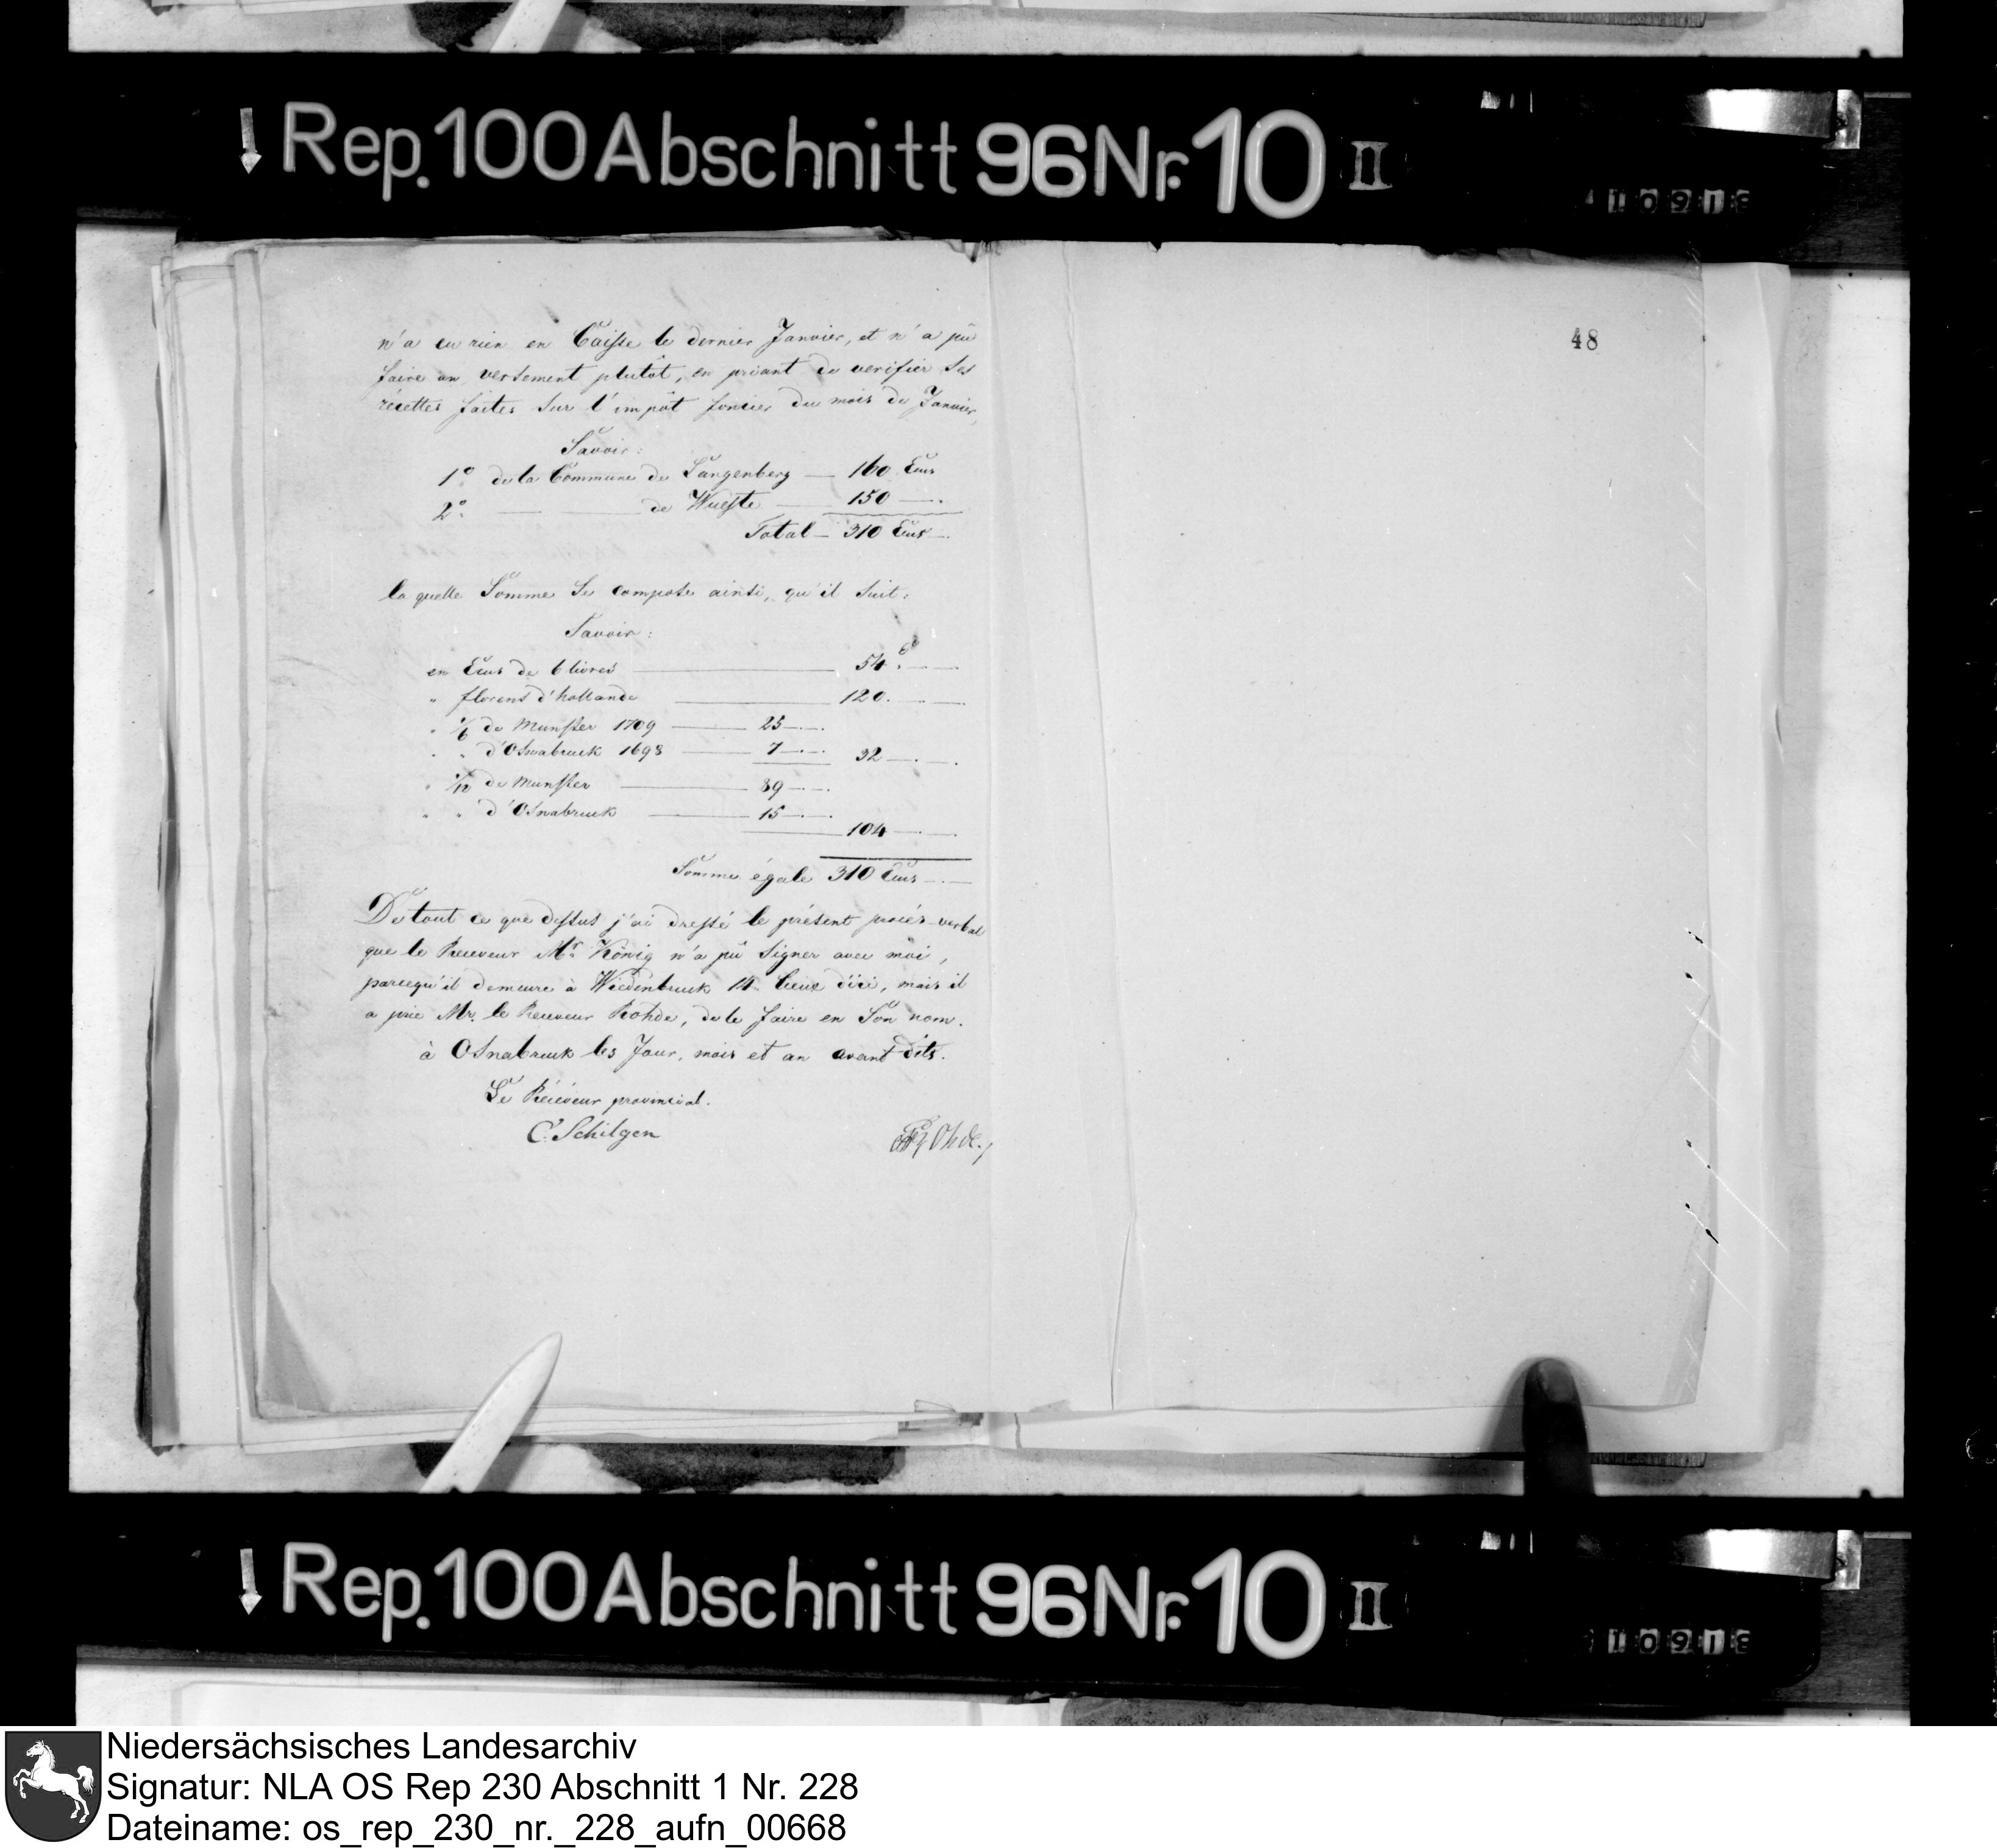 Rep. 100 Abschnitt 96 Nr. 10 II
10918
48
n'a eu rien en Caisse le dernier Janvier, et n'a pû
faire un versement plutôt, en priant de verifier ses
récettes faites sur l'impôt foncier du mois de Janvier,
Savoir:
1° de la Commune de Langenberg — 160 Ecus
2° — — de Wueste — 150 —.
Total — 310 Ecus —.
la quelle Somme se compose ainsi, qu'il suit:
Savoir:
en Ecus de 6 livres — 54. —
" florens d'hollande — 120. —
" 1/6 de Munster 1709 — 25 —.
" " d'Osnabruck 1698 — 7 —. 32 —.
" 1/12 de Munster — 89 —.
" " d'Osnabruck — 15 —.
104 —.
Somme égale 310 Ecus —.
De tout ce que dessus j'ai dressé le présent procés-verbal
que le Receveur Mr. König n'a pû signer avec moi,
parcequ'il demeure à Wiedenbruck lieux d'ici, mais il
a prie Mr. le Receveur Rohde, de le faire en Son nom.
à Osnabruck les Jour, mois et an avant dits.
Le Réceveur provincial.
C. Schilgen
Rohde
Rep. 100 Abschnitt 96 Nr. 10 II
10918
Niedersächsisches Landesarchiv
Signatur: NLA OS Rep 230 Abschnitt 1 Nr. 228
Dateiname: os_rep_230_nr._228_aufn_00668